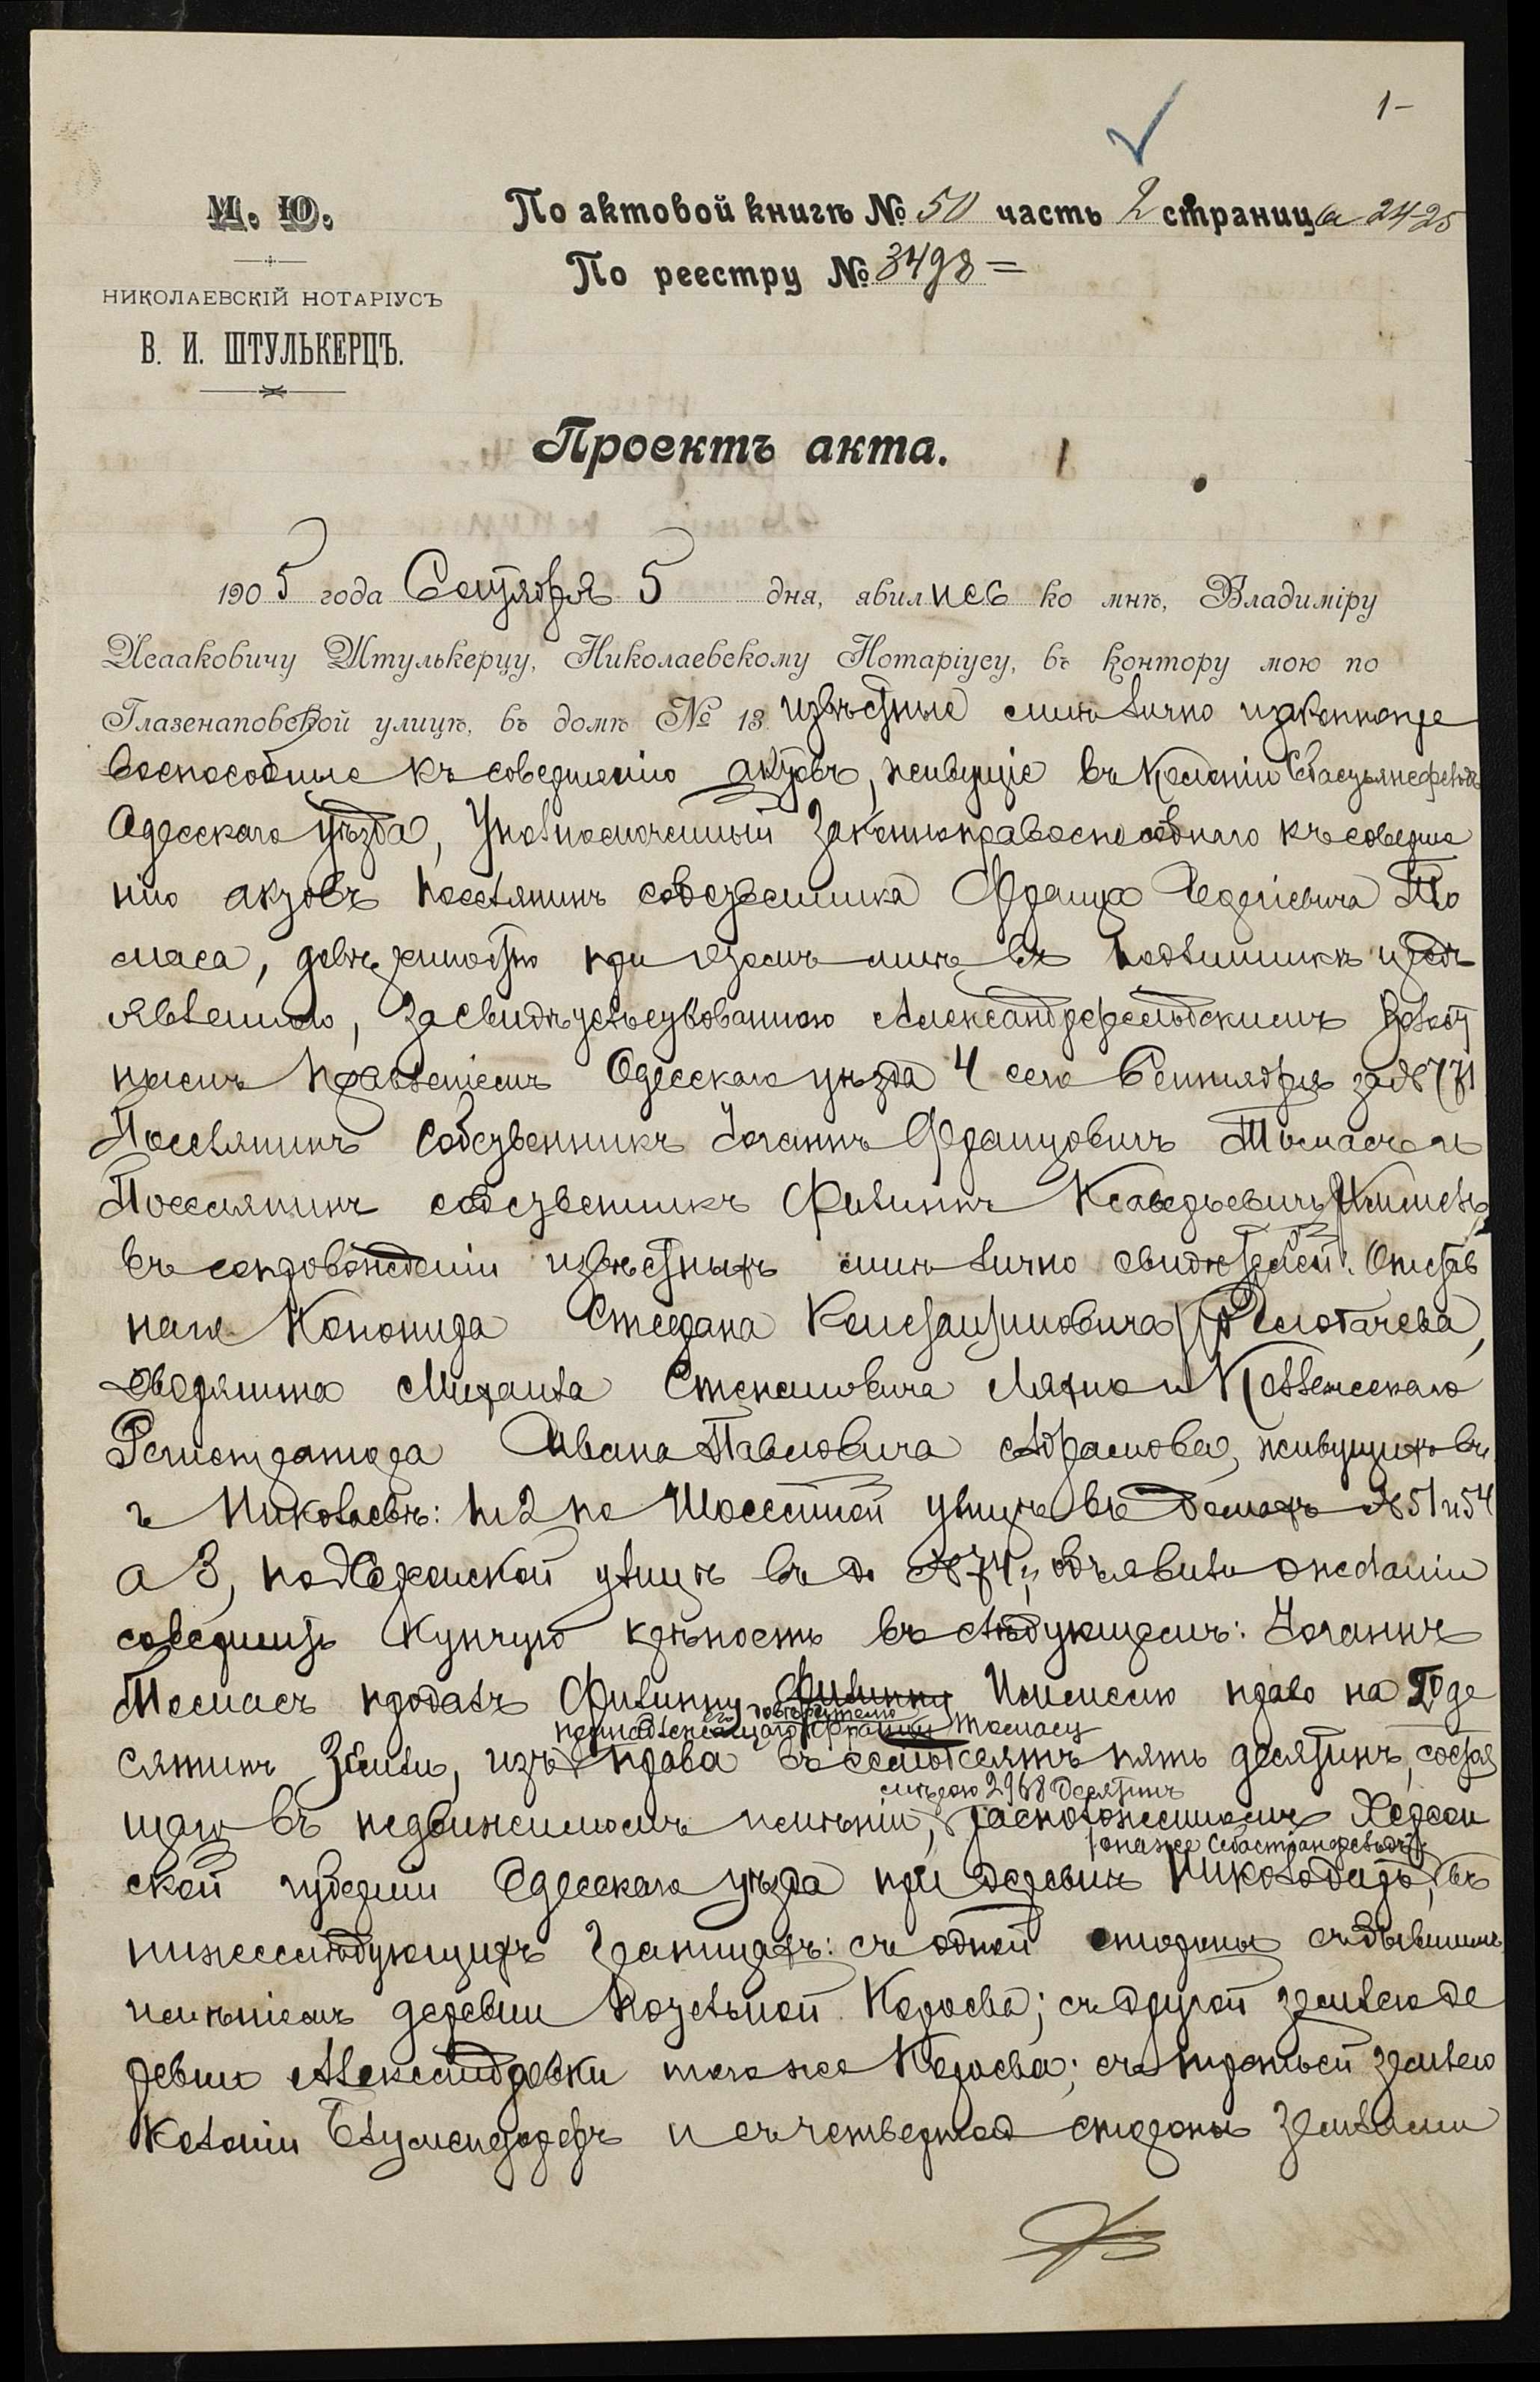 1-
М. Ю.
НИКОЛАЕВСКІЙ НОТАРІУСЪ
В. И. ШТУЛЬКЕРЦЪ.
По актовой книгѣ № 50 часть 2 страница 24-25
По реестру № 3498 =
Проектъ акта.
1905 года Сентября 5 дня, явились ко мнѣ, Владиміру
Исааковичу Штулькерцу, Николаевскому Нотаріусу, въ контору мою по
Глазенаповской улицѣ, въ домѣ № 13 извѣстные мнѣ лично и законопра
воспособные къ совершенію актовъ, живущіе въ Колоніи Себастьянсфельдъ
Одесскаго уѣзда, Уполномоченный Законноправоспособнаго къ соверше
нію актовъ поселянинъ собственника Франца Георгіевича То
маса, довѣренностью при этомъ мнѣ въ подлинникѣ предъ
явленною, засвидѣтельствованною Александерфельдскимъ Волост
нымъ Правленіемъ Одесскаго уѣзда 4 сего Сентября за № 771
Поселянинъ Собственникъ Іоганнъ Францовичъ Томасъ и
Поселянинъ собственникъ Филиппъ Ксаверьевичъ
въ сопровожденіи извѣстныхъ мнѣ лично свидѣтелей: Отстав
наго Канонира Степана Константиновича
дворянина Михаила Степановича Ляхно и Коллежскаго
Регистратора Ивана Павловича Абрамова, живущихъ въ
г Николаевѣ: 1 и 2 по Шоссейной улицѣ въ домахъ № 51 и 54
а 3, по Херсонской улицѣ въ д № 74, объявили о желаніи
совершить Купчую крѣпость въ слѣдующемъ: Іоганнъ
Томасъ продалъ Филиппу Филиппу право на 10 де
принадлежащаго его довѣрителю Францу Томасу
сятинъ Земли, изъ права въ семьдесятъ пять десятинъ, состоя
мѣрою 2968 Десятинъ
щаго въ недвижимомъ имѣніи, расположенномъ Херсон
она же Себастіансфельдъ
ской губерніи Одесскаго уѣзда при деревнѣ въ
нижеслѣдующихъ Границахъ: съ одной стороны съ бывшимъ
имѣніемъ деревни Козельной Кораева; съ другой землею де
ревни Александровки того же Кораева; съ третьей землею
Колоніи Блументорфъ и съ четвертой стороны Землями